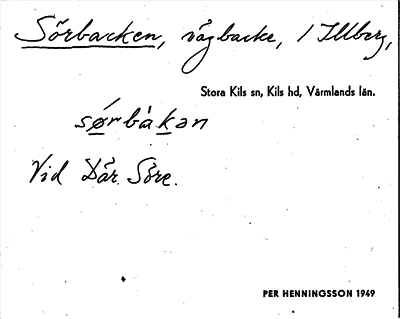 Sörbacken, vägbacke, i Illberg,
Stora Kils sn, Kils hd, Värmlands län.
sørbakan
Vid Där Söre.
PER HENNINGSSON 1949